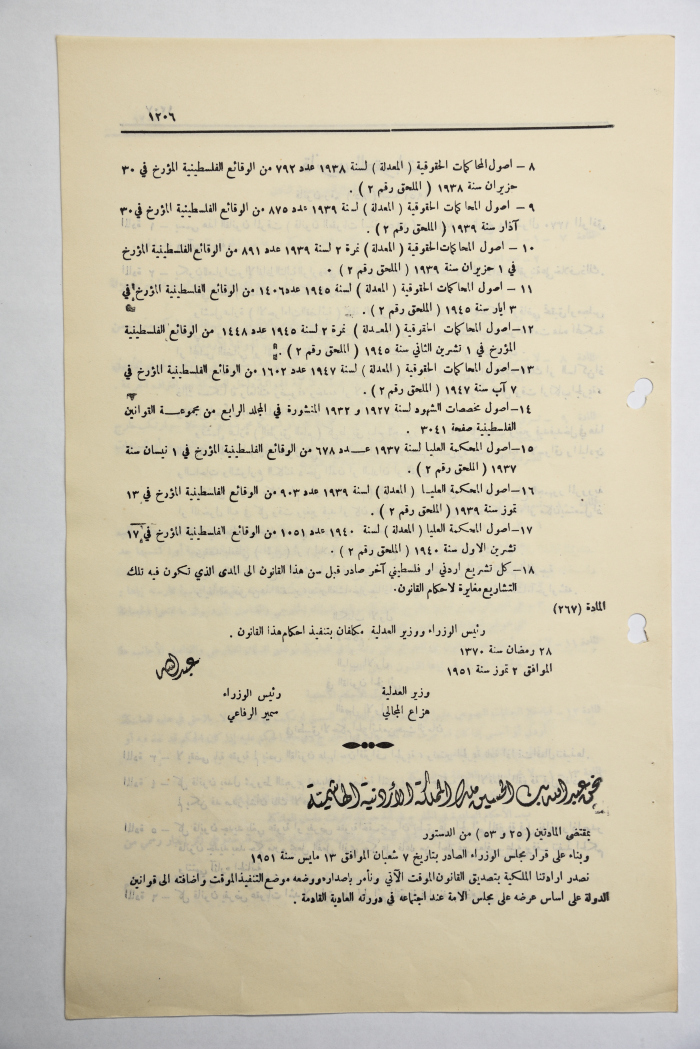 ١٢٠٦
٨ – اصول المحاكمات الحقوقية ( المعدلة ) لسنة ١٩٣٨ عدد ٧٩٢ من الوقائع الفلسطينية المؤرخ في ٣٠
حزيران سنة ١٩٣٨ ( الملحق رقم ٢ ) .
٩ – اصول المحاكمات الحقوقية ( المعدلة ) لسنة ١٩٣٩ عدد ٨٧٥ من الوقائع الفلسطينية المؤرخ في ٣٠
آذار سنة ١٩٣٩ ( الملحق رقم ٢ ) .
١٠ – اصول المحاكمات الحقوقية ( المعدلة ) نمرة ٢ لسنة ١٩٣٩ عدد ٨٩١ من الوقائع الفلسطينية المؤرخ
في ١ حزيران سنة ١٩٣٩ ( الملحق رقم ٢ ) .
١١ – اصول المحاكمات الحقوقية ( المعدلة ) لسنة ١٩٤٥ عدد ١٤٠٦ من الوقائع الفلسطينية المؤرخ في
٣ ايار سنة ١٩٤٥ ( الملحق رقم ٢ ) .
١٢– اصول المحاكمات الحقوقية ( المعدلة ) نمرة ٢ لسنة ١٩٤٥ عدد ١٤٤٨ من الوقائع الفلسطينية
المؤرخ في ١ تشرين الثاني سنة ١٩٤٥ ( الملحق رقم ٢ ) .
١٣– اصول المحاكمات الحقوقية ( المعدلة ) لسنة ١٩٤٧ عدد ١٦٠٢ من الوقائع الفلسطينية المؤرخ في
٧ آب سنة ١٩٤٧ ( الملحق رقم ٢ ) .
١٤– اصول مخصصات الشهود لسنة ١٩٢٧ و ١٩٣٢ المنشورة في المجلد الرابع من مجموعة القوانين
الفلسطينية صفحة ٣٠٤١ .
١٥– اصول المحكمة العليا لسنة ١٩٣٧ عدد ٦٧٨ من الوقائع الفلسطينية المؤرخ في ١ نيسان سنة
١٩٣٧ ( الملحق رقم ٢ ) .
١٦– اصول المحكمة العليا ( المعدلة ) لسنة ١٩٣٩ عدد ٩٠٣ من الوقائع الفلسطينية المؤرخ في ١٣
تموز سنة ١٩٣٩ ( الملحق رقم ٢ ) .
١٧– اصول المحكمة العليا ( المعدلة ) لسنة ١٩٤٠ عدد ١٠٥١ من الوقائع الفلسطينية المؤرخ في ١٧
تشرين الاول سنة ١٩٤٠ ( الملحق رقم ٢ ) .
١٨– كل تشريع اردني او فلسطيني آخر صادر قبل سن هذا القانون الى المدى الذي تكون فيه تلك
التشاريع مغايرة لاحكام القانون .
المادة (٢٦٧)
رئيس الوزراء ووزير العدلية مكلفان بتنفيذ احكام هذا القانون .
٢٨ رمضان سنة ١٣٧٠
الموافق ٢ تموز سنة ١٩٥١
عبد الله
وزير العدلية رئيس الوزراء
هزاع المجالي سمير الرفاعي
نحن عبد الله بن الحسين ملك المملكة الأردنية الهاشمية
بمقتضى المادتين ( ٢٥ و ٥٣ ) من الدستور
وبناء على قرار مجلس الوزراء الصادر بتاريخ ٧ شعبان الموافق ١٣ مايس سنة ١٩٥١
نصدر ارادتنا الملكية بتصديق القانون الموقت الآتي ونأمر باصداره ووضعه موضع التنفيذ الموقت واضافته الى قوانين
الدولة على اساس عرضه على مجلس الامة عند اجتماعه في دورته العادية القادمة .